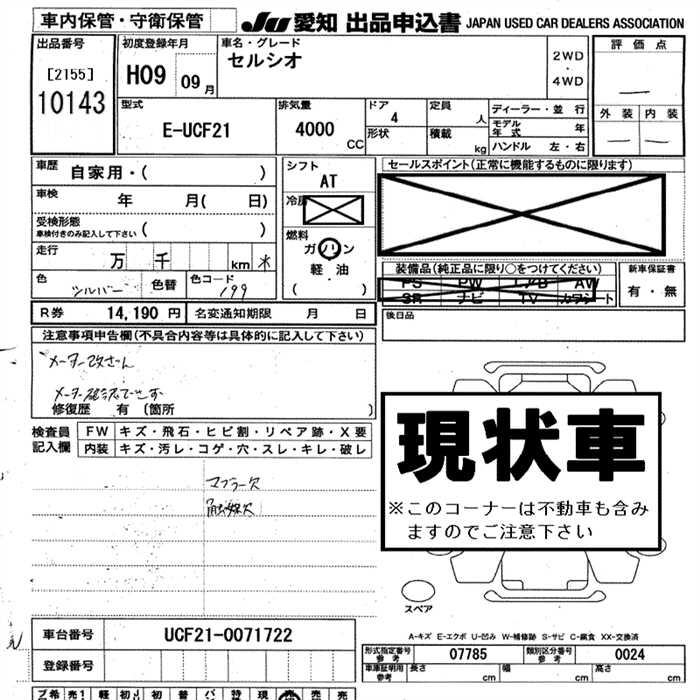 車内保管・守衛保管
JU 愛知 出品申込書 JAPAN USED CAR DEALERS ASSOCIATION
出品番号
[2155]
10143
初度登録年月
H09 09月
車名・グレード
セルシオ
2WD
・
4WD
評価点
外装 内装
型式
E-UCF21
排気量
4000 CC
ドア 4
形状
定員 人
積載 kg
ディーラー・並行
モデル年式 年
ハンドル 左・右
車歴 自家用・( )
車検 年 月( 日)
受検形態
車検付きのみ記入して下さい ( )
走行 万 千 km
色 シルバー 色替 色コード 199
シフト
AT
冷房
燃料
ガソリン
軽油
( )
セールスポイント(正常に機能するものに限ります)
装備品(純正品に限り○をつけてください)
PS PW エアB AW
SR ナビ TV カワシート
新車保証書
有・無
R券 14,190 円 名変通知期限 月 日
後日品
注意事項申告欄(不具合内容等は具体的に記入して下さい)
メーター改ざん
修復歴 有 (箇所 )
検査員記入欄
FW キズ・飛石・ヒビ割・リペア跡・X要
内装 キズ・汚レ・コゲ・穴・スレ・キレ・破レ
マフラー欠
触媒欠
現状車
※このコーナーは不動車も含み
ますのでご注意下さい
スペア
A-キズ E-エクボ U-凹み W-補修跡 S-サビ C-腐食 XX-交換済
車台番号 UCF21-0071722
登録番号
形式指定番号 参考 07785 類別区分番号 参考 0024
車庫証明用 参考 長さ cm 幅 cm 高さ cm